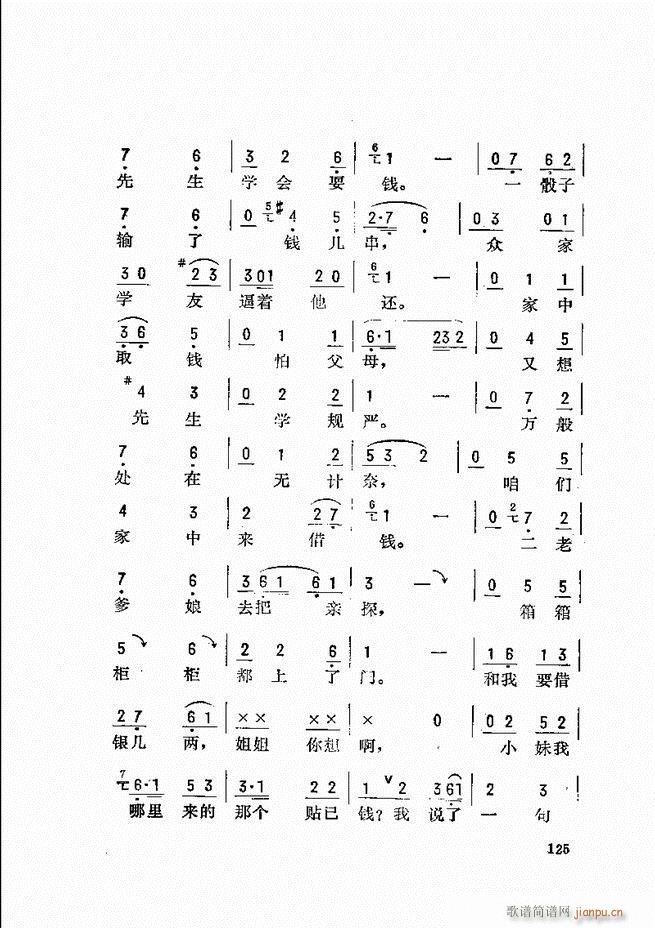 7 6 | 3 2 6 | 6 1 — | 0 7 6 2 |
先 生 学 会 耍 钱。 一 骰子
7 6 | 0 5 #4 5 | 2·7 6 | 0 3 0 1 |
输 了 钱 儿 串， 众 家
3 0 #2 3 | 3 0 1 2 0 | 6 1 — | 0 1 1 |
学 友 逼着 他 还。 家 中
3 6 5 | 0 1 1 | 6·1 2 3 2 | 0 4 5 |
取 钱 怕 父 母， 又 想
#4 3 | 0 2 2 | 1 — | 0 7 2 |
先 生 学 规 严。 万 般
7 6 | 0 1 2 | 5 3 2 | 0 5 5 |
处 在 无 计 奈， 咱 们
4 3 | 2 2 7 | 6 1 — | 0 2 7 2 |
家 中 来 借 钱。 二 老
7 6 | 3 6 1 6 1 | 3 — | 0 5 5 |
爹 娘 去把 亲 探， 箱 箱
5 6 | 2 2 6 | 1 — | 1 6 1 3 |
柜 柜 都 上 了 门。 和我 要借
2 7 6 1 | × × × × | × 0 | 0 2 5 2 |
银几 两， 姐姐 你想 啊， 小 妹我
7 6·1 5 3 | 3·1 2 2 | 1 ∨ 2 3 6 1 | 2 3 |
哪里 来的 那个 贴已 钱？我 说了 一 句
125
歌谱简谱网 jianpu.cn